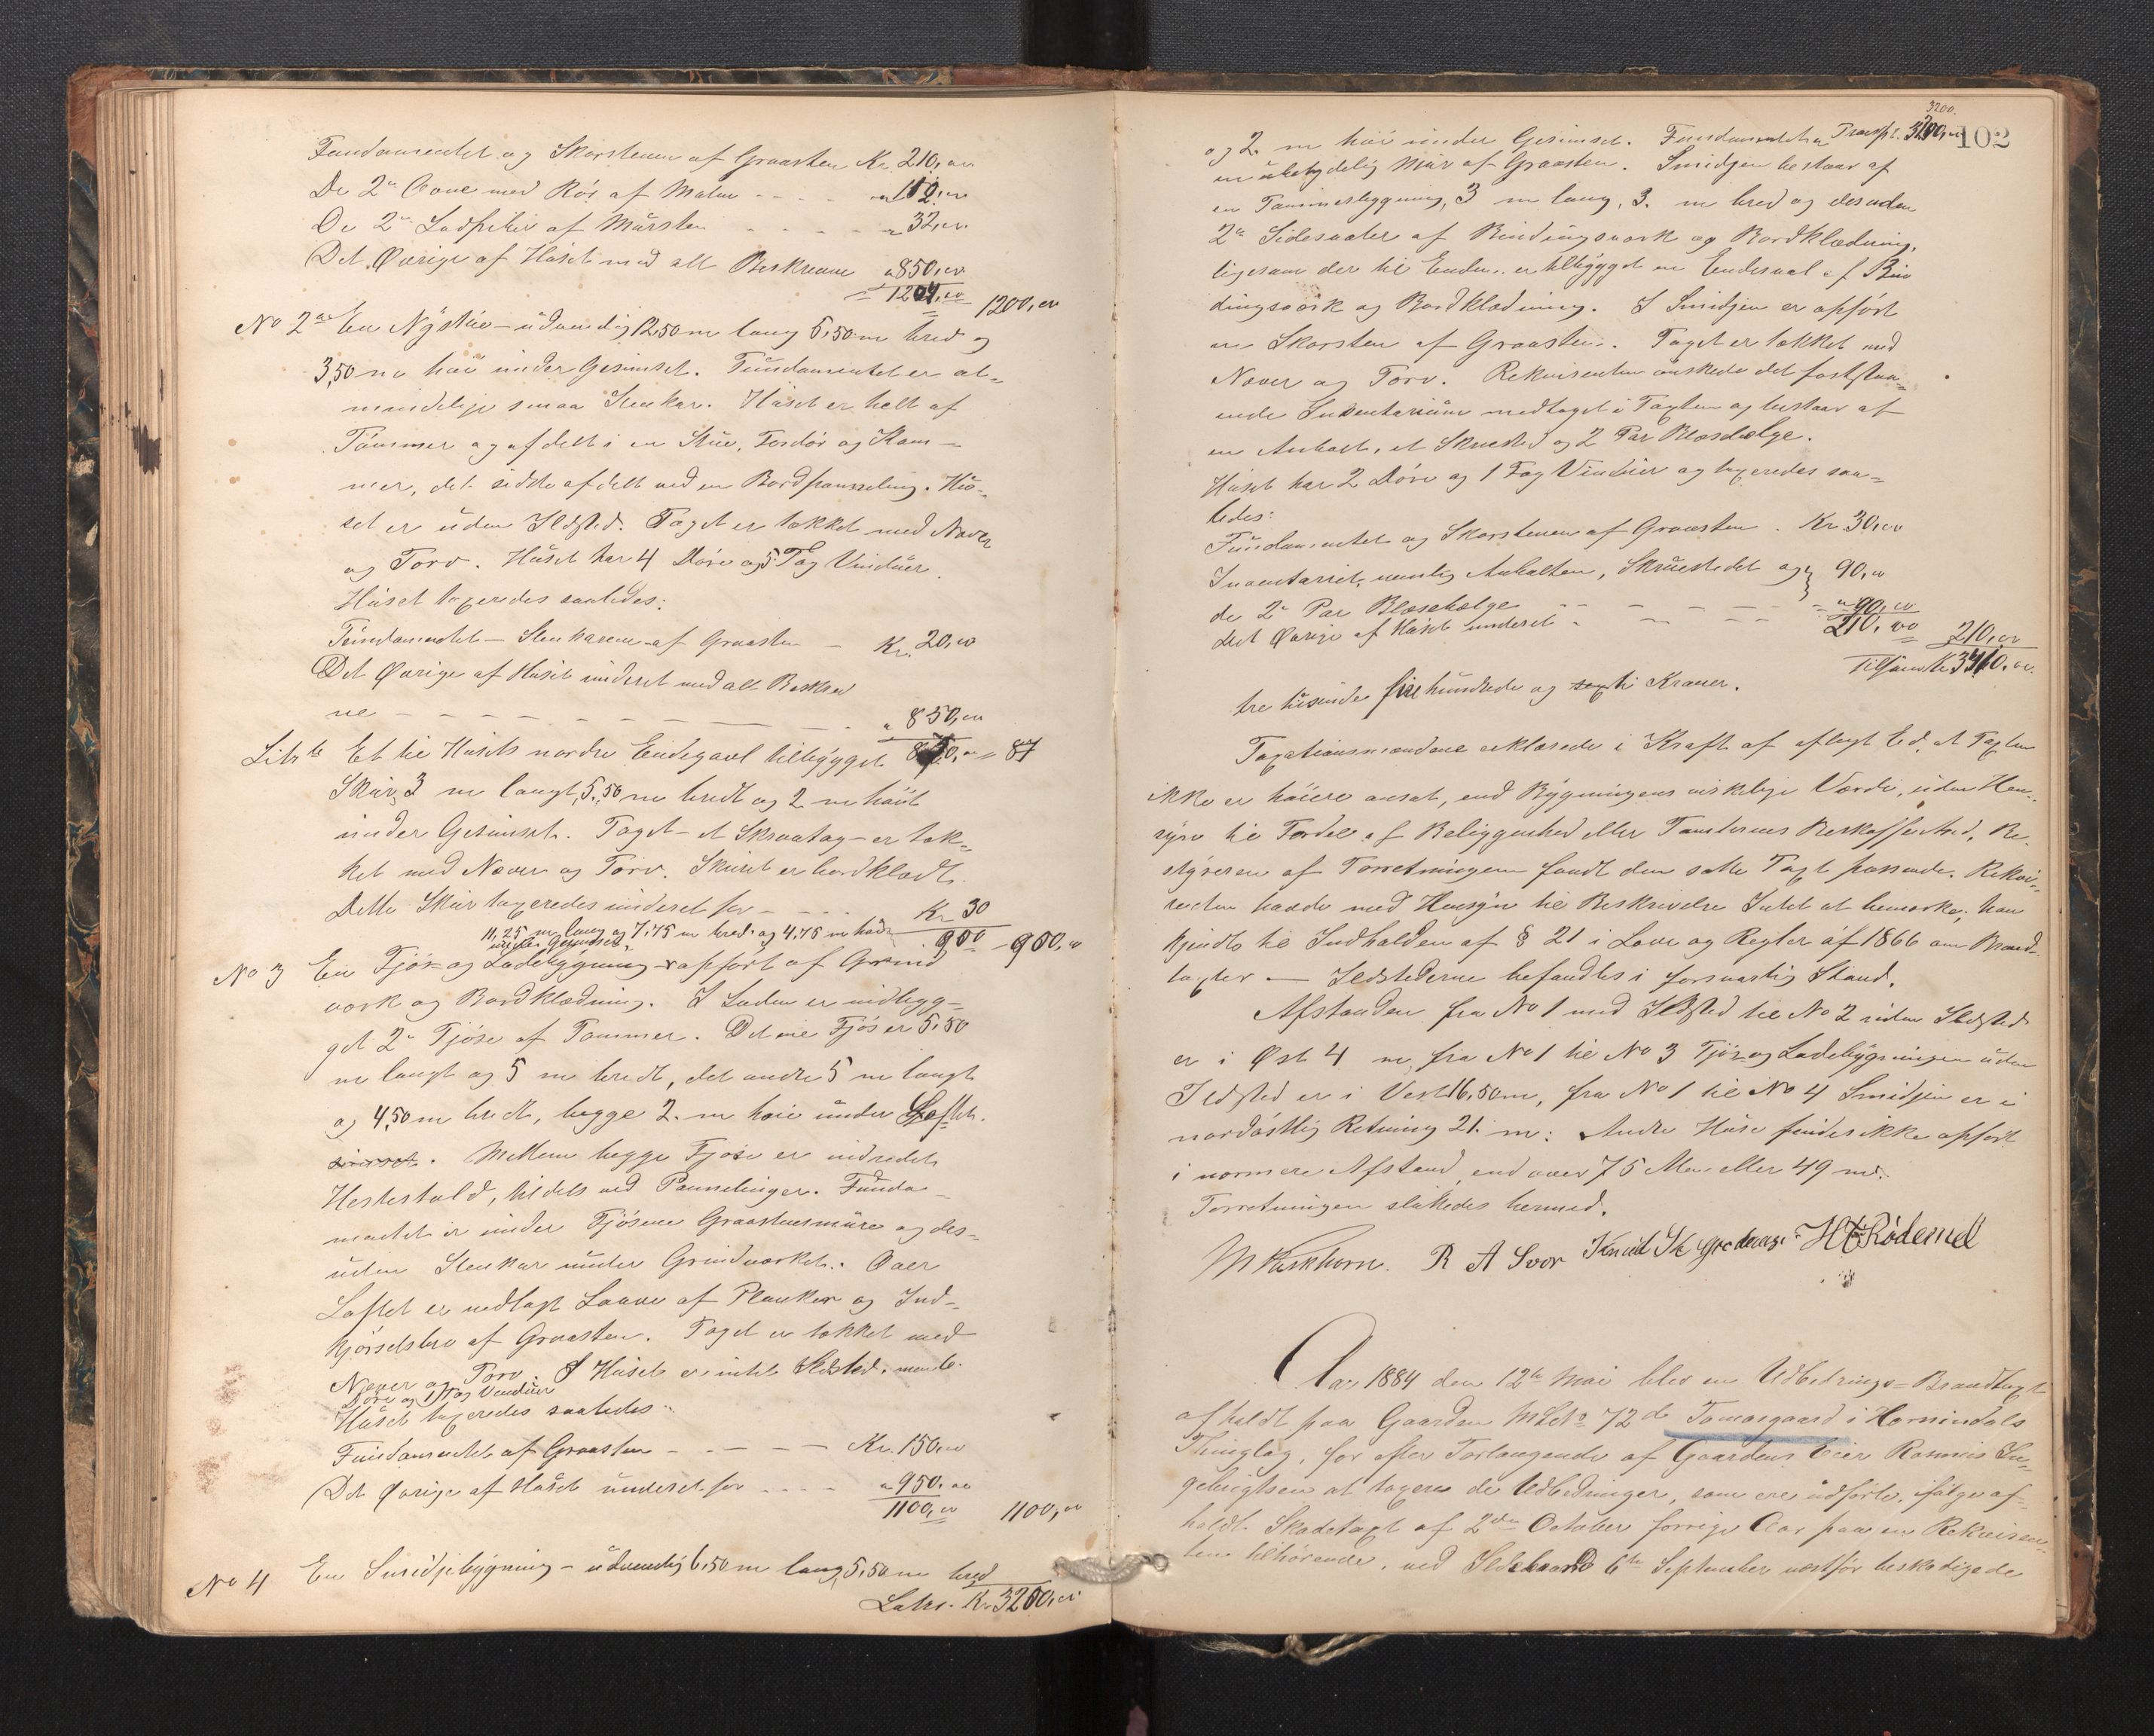 Fundamentet og Skorstenen af Graasten Kr. 210,00
De 2de Ovne med Rör af Malm - - - - " 112,00
De 2de Ladpiber af Mursten - - - - - " 32,00
Det Øvrige af Huset med alt Beskrevne " 850,00
= 1204,00 1200,00
No 2 En Nystue - udvendig 12,50 m lang 5,50 m bred og
3,50 m höi under Gesimset. Fundamentet er al-
mindelige smaa Stenkar. Huset er helt af
Tömmer og afdelt i en Stue, Fordör og Kam-
mer, det sidste afdelt ved en Bordpanneling. Hu-
set er uden Ildsted. Taget er tækket med Næver
og Torv. Huset har 4 Döre og 5 Fag Vinduer.
Huset taxeredes saaledes:
Fundamentet - Stenkarene af Graasten - Kr. 20,00
Det Øvrige af Huset inderet med alt Beskrev
ne - - - - - - - - " 850,00
Litr b Et til Husets nordre Endegavl tilbygget 870,00 = 87
Skur, 3 m langt, 5,50 m bredt og 2 m höit
under Gesimset. Taget - et Skraatag - er tæk-
ket med Næver og Torv. Skuret er bordklædt.
Dette Skur taxeredes inderet for - - - Kr. 30
900 - 900,00
11,25 m lang og 7,75 m bred og 4,75 m höi
under Gesimset
No 3 En Fjös- og Ladebygning - opfört af Grind
værk og Bordklædning. I Laden er indbyg-
get 2de Fjöse af Tømmer. Det ene Fjös er 5,50
m langt og 5 m bredt, det andet 5 m langt
og 4,50 m bredt, begge 2. m höie under Loftet.
Mellem begge Fjöse er indredet
Hestestald, tildels ved Pannelinger. Funda-
mentet er under Fjösene Graastensmure og des-
uden Stenkar under Grindværket. Over
Loftet er nedlagt Laave af Planker og Ind-
kjörselsbro af Graasten. Taget er tækket med
Næver og Torv. I Huset er intet Ildsted, men 6.
Döre og 1 Fag Vinduer
Huset taxeredes saaledes:
Fundamentet af Graasten - - - - Kr. 150,00
Det Øvrige af Huset inderet for - - - - " 950,00
1100,00 1100,00
No 4 En Smidjebygning - udvendig 6,50 m lang 5,50 m bred
Latr. Kr. 3200,00
3200.
102
og 2. m höi under Gesimset. Fundamentet er Transpt. 3200,00
en ubetydelig Mur af Graasten. Smidjen bestaar af
en Tømmerbygning, 3 m lang, 3. m bred og desuden
2de Sidesvaler af Bindingsværk og Bordklædning,
ligesom der til Enden er tilbygget en Endesval af Bin
dingsværk og Bordklædning. I Smidjen er opfört
en Skorsten af Graasten. Taget er tækket med
Næver og Torv. Rekvirenten önskede det faststaa-
ende Inventarium medtaget i Taxten og bestaar af
en Ambolt, et Skruested og 2 Par Blæsebælge.
Huset har 2 Döre og 1 Fag Vinduer og taxeredes saa-
ledes:
Fundamentet og Skorstenen af Graasten . Kr 30,00
Inventariet, nemlig Ambolten, Skruestedet og } 90,00
de 2de Par Blæsebælge - - - - -
Det Øvrige af Huset inderet - - - - " 90,00
210,00 210,00
Tilsam. Kr 3410,00
tre tusinde firehundrede og ti Kroner.
Taxationsmændene erklærede i Kraft af aflagt Ed, at Taxten
ikke er höiere ansat, end Bygningens virkelige Værdi, uden Hen-
syn til Fordele af Beliggenhed eller Tomternes Beskaffenhed. Be-
styreren af Forretningen fandt den satte Taxt passende. Rekvi-
renten havde med Hensyn til Beskrivelse Intet at bemærke; han
kjendte til Indholdet af § 21 i Lov og Regler af 1866 om Brand-
taxter — Ildstederne befandtes i forsvarlig Stand.
Afstanden fra No 1 med Ildsted til No 2 uden Ildsted
er i Öst 4 m, fra No 1 til No 3 Fjös og Ladebygningen uden
Ildsted er i Vest 16,50 m, fra No 1 til No 4 Smidjen er i
nordöstlig Retning 21. m: Andre Huse findes ikke opfört
i nærmere Afstand, end over 75 Alen eller 49 m.
Forretningen sluttedes hermed.
R A Svor
Aar 1884 den 12te Mai blev en Udbedrings-Brandtaxt
afholdt paa Gaarden M. L. No 72 de Tomasgaard i Hornindals
Thinglag, for efter Forlangende af Gaardens Eier Rasmus In-
gebrigtsen at taxere de Udbedringer, som ere udförte, ifölge af-
holdt Skadetaxt af 2den October forrige Aar paa en Rekviren-
ten tilhörende, ved Ildebrand 6te September næstför beskadigede